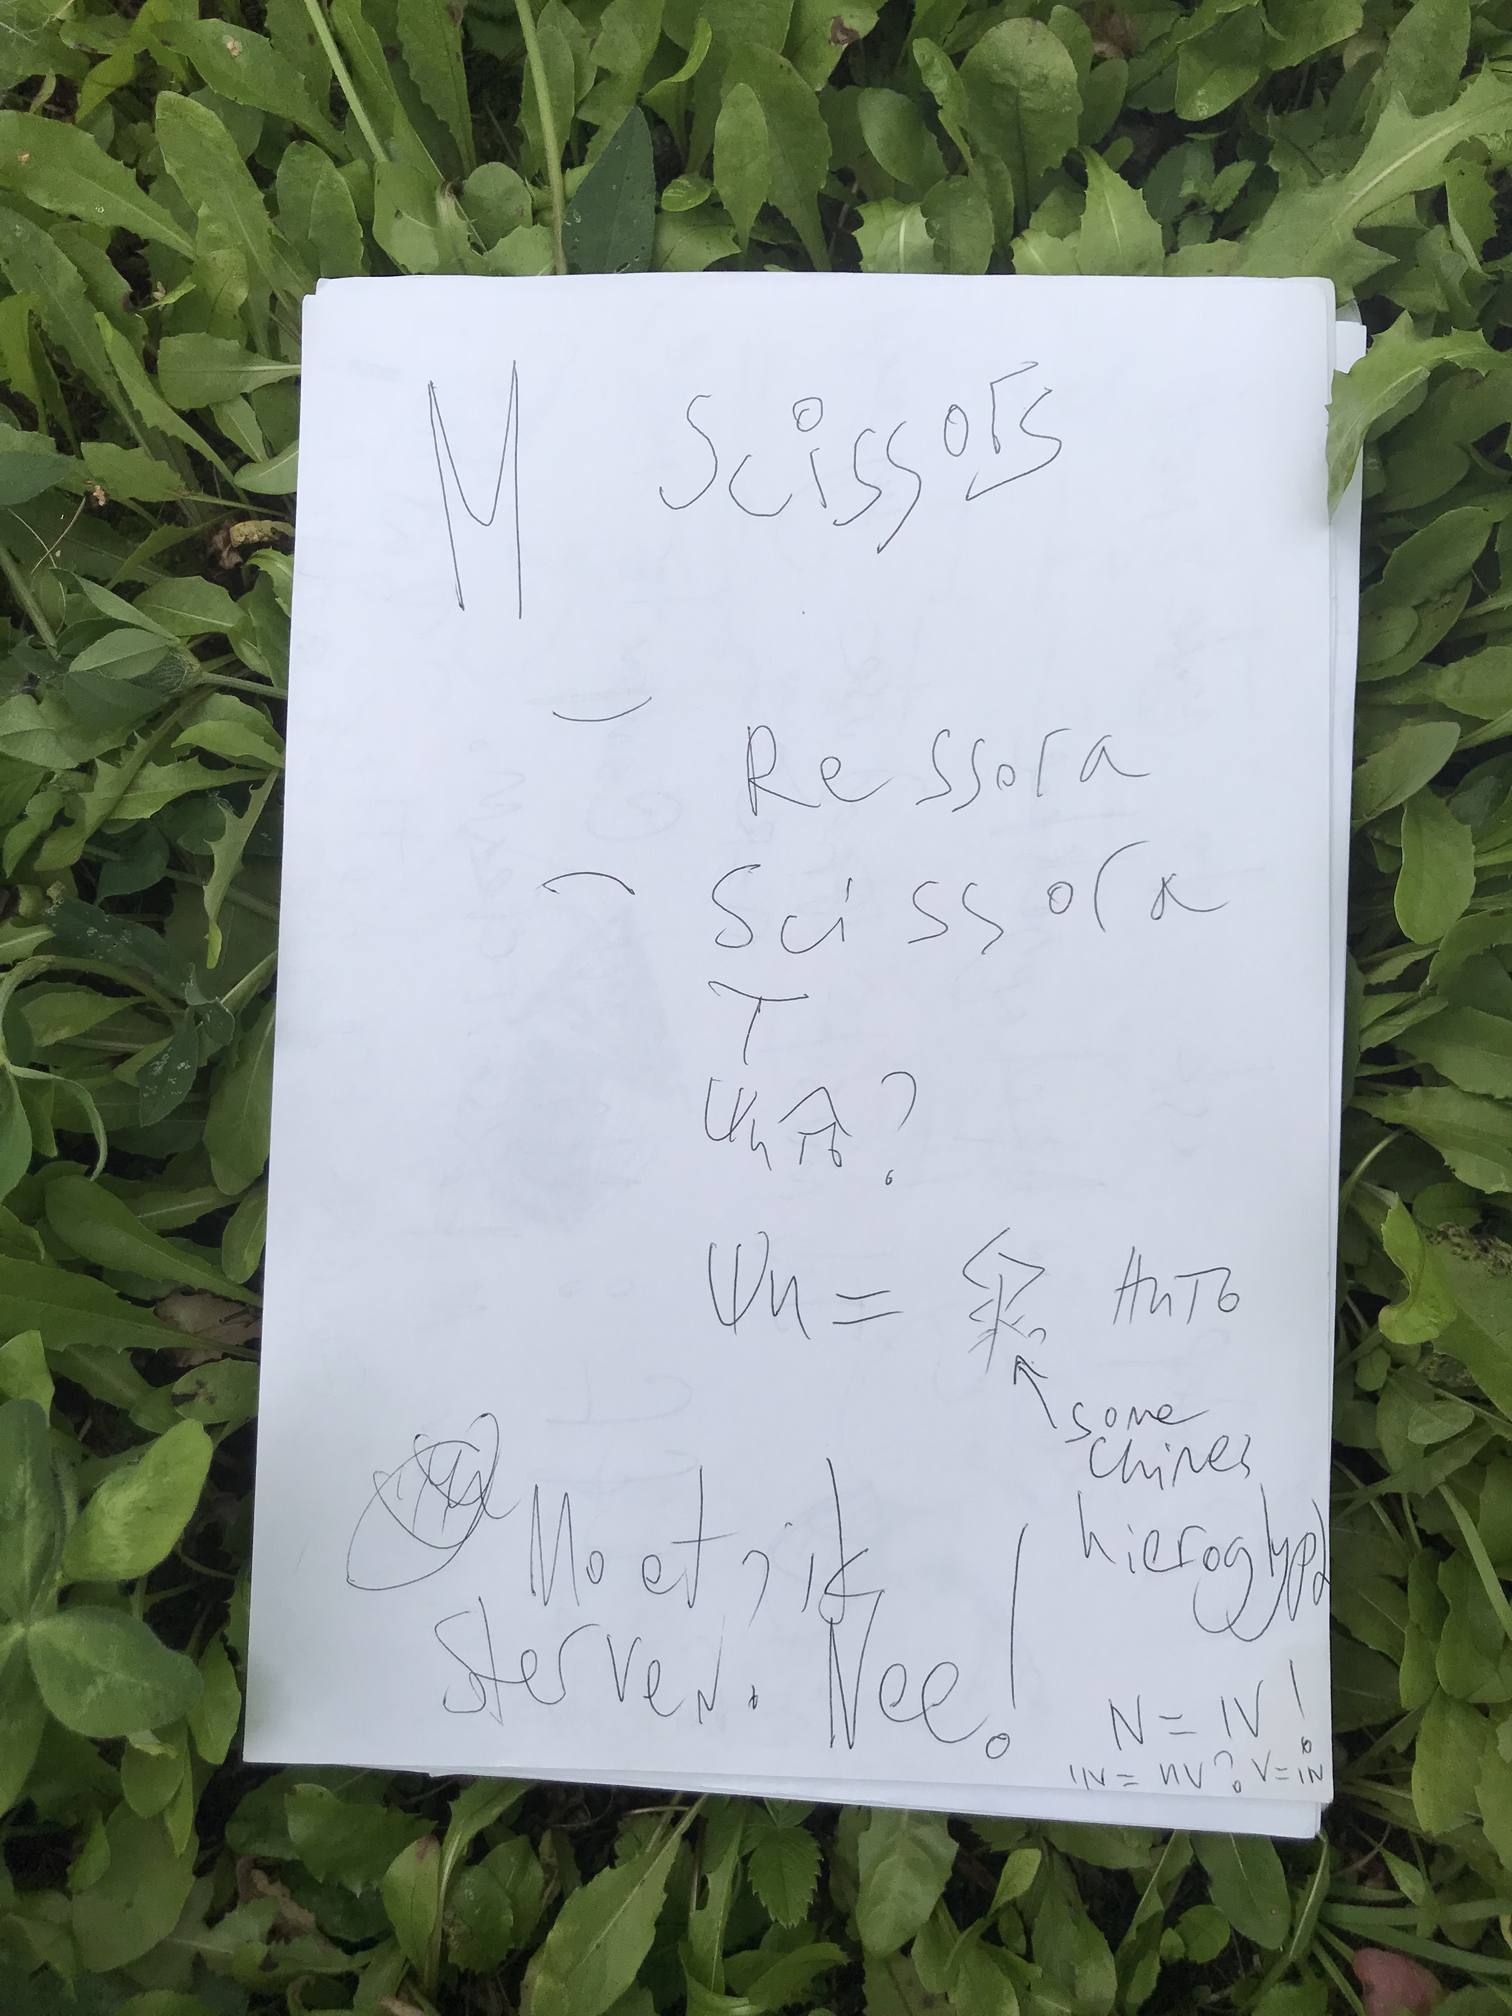 M Scissors
Ressora
Scissora
T
ψu =
нить
some
chines
hieroglyph
Moet ik
sterven. Nee!
N = IV!
IN = ИV? V = IN